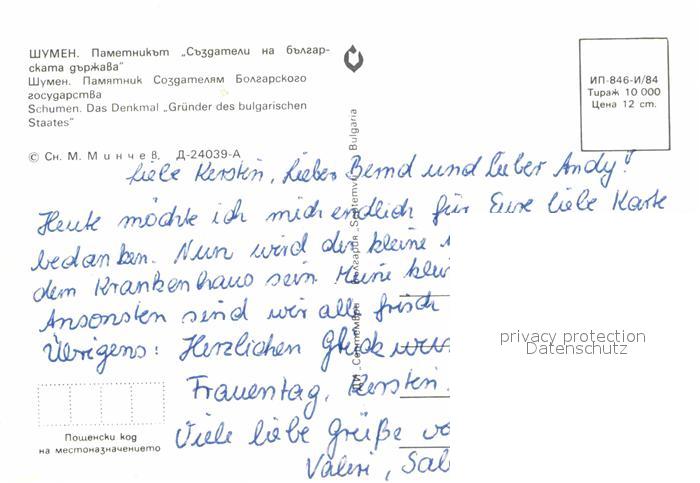 ШУМЕН. Паметникът „Създатели на българ-
ската държава"
Шумен. Памятник Создателям Болгарского
государства
Schumen. Das Denkmal „Gründer des bulgarischen
Staates"
© Сн. М. Минчев, Д-24039-А
ИП-846-И/84
Тираж 10 000
Цена 12 ст.
ДИ „Септември" България „Septemvri" Bulgaria
Liebe Kerstin, Lieber Bernd und lieber Andy!
Heute möchte ich mich endlich für Eure liebe Karte
bedanken. Nun wird der kleine
dem Krankenhaus sein. Meine
Ansonsten sind wir alle frisch
Übrigens: Herzlichen
Frauentag, Kerstin.
Viele liebe Grüße
Valeri,
privacy protection
Datenschutz
Пощенски код
на местоназначението